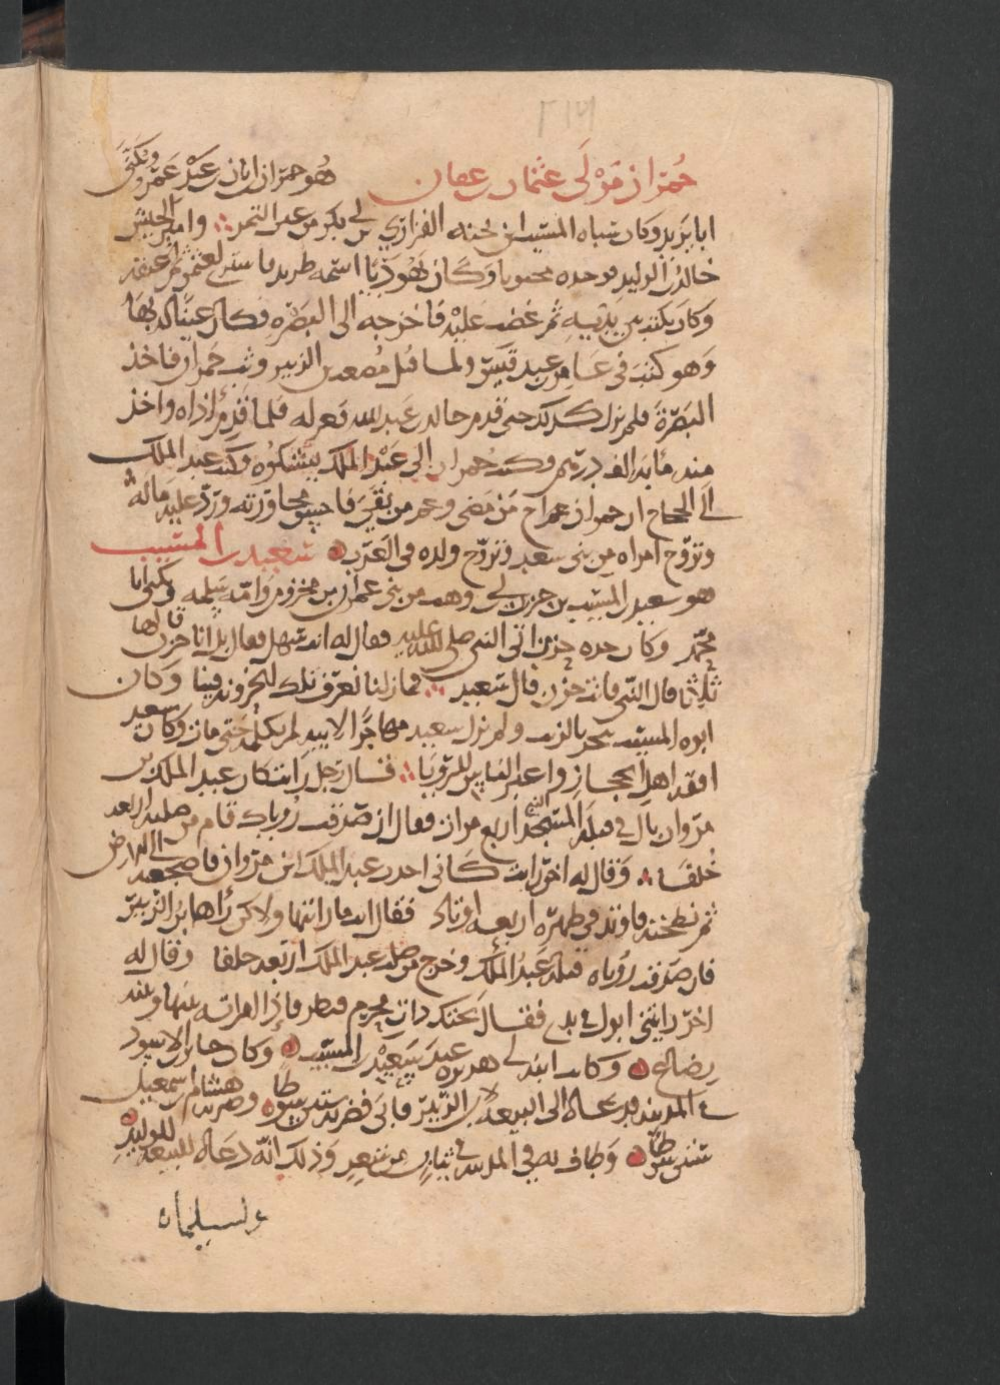 حُمرَان مَوْلَى عثمان بن عفان هُو حمران ابن ابان بن عَبْد عَمرو ويكنى
ابا يزيد وكان سباه المسيب ابن نجبه الفزاري لابي بكر من عين التمر ∴ وامير الجيش
خالد بن الوليد فوجده مختونا وَكَانَ يَهُوديًا اسمه طويدا فاشتري لعثمن ثم اعتقه
وكان يكتب بين يديه ثم غضب عليه فاخرجه الى البصَره فكان عينًا له بها
وَهو كتب في عَامر بن عبد قيسَ ولما قتل مُصعب بن الزبير وثب حمران فاخذ
البَصَرةَ فلم يزل كذلك حتى قدم خالد بن عَبد الله فعزله فلما قَدِمَ اذاه واخذ
منه مَايه الف درهم وكتب حُمران الى عَبْد الملك يَشْكوُه وكتب عبد الملك
الى الحجاج ان حمران عم اخ مَنْ مَضى وعم من بَقِىَ فاحسن مجاورته ورَدّ عليه مَاله
وتزوّج امراه مِن بنى سعد وتزوّج ولده فى العَرَب ۞ سَعِيد بن المسَيب
هو سعيد بن المسَيّب بن حزن بن ابي وهب من بنى عمران بن مخزوم وَامّه سَلِمه ويكنى ابا
محمّد وكان جده حزن اتى النبى صلى الله عليه فقال له انت سَهل فقال بل انا حزن قالها
ثلاثًا قال النبّى فانت حزن قال سَعيد ∴ فمازلنا نعرّف تلك الحزونه فينا وَكان
ابوه المسيّب يتجر بالزيت ولم يزل سعيد مهاجرًا لابيه لم يكلمه حَتى مات وكان سعيد
افقه اهل الحجاز واعبر الناس للرّؤيا ∴ قَال له رَجل رَايت كان عبد الملك بن
مرَوان يبال في قبله المسجد النبي اربع مرات فقال ان صَدقت رُوياك قام من صلبه اربعه
خُلفَا ∴ وَقال له اخَر رَايت كَاني اخدت عبد الملك ابن مرَوان فاضجعته الى الارض
ثم بَطحته فاوتدت فى ظهرَه اربعه اوتاد فقال انت ما رَايتها ولاكن رَأها بن الزبيرَ
فان صَدقت رُوياه قتله عَبدُ الملك وخرج من صلب عبد الملك اربَعه خلفا وَقال له
اخرَ رَايتني ابول في يدي فقَال تحتك ذات محرم فنظر فاذا امراته بينها وبينه
رِضاع ۞ وكانت ابنه ابي هريره عِند سَعِيْد بن المسَيّب ۞ وكان جابر بن الاسود
عَ المدينه فدعَاه الى البيعه لابن الزبيّر فابَى فضَربه ستين سوطًا وضَربه هشام بن اسمعيل
ستّين سَوطًا ۞ وَطاف به في المدينه في تُبان من شَعر وَذلك انّه دعَاه للبيعه للوليد
ولسليمان